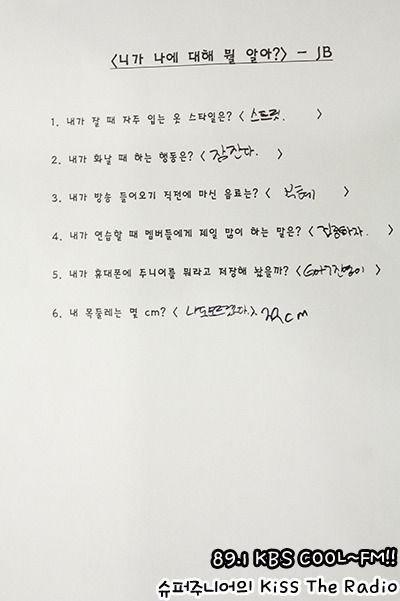 <니가 나에 대해 뭘 알아?> - JB
1. 내가 잘 때 자주 입는 옷 스타일은? < 스트릿. >
2. 내가 화날 때 하는 행동은? < 잠잔다. >
3. 내가 방송 들어오기 직전에 마신 음료는? < >
4. 내가 연습할 때 멤버들에게 제일 많이 하는 말은? < 집중하자. >
5. 내가 휴대폰에 주니어를 뭐라고 저장해 놨을까? < GOT7진영이 >
6. 내 목둘레는 몇 cm? < 나도모르겠다. > cm
89.1 KBS COOL~FM!!
슈퍼주니어의 Kiss The Radio